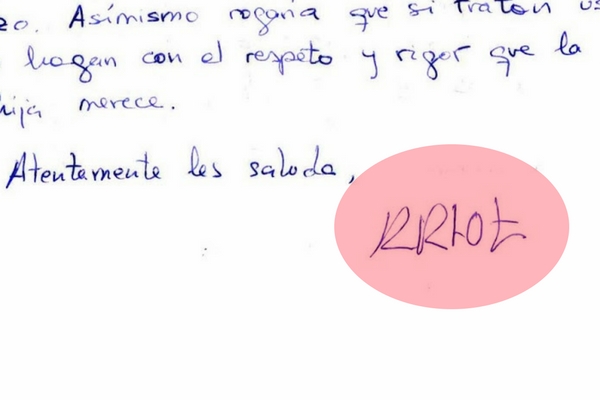 eo. Asímismo rogaria que si traton us
hagan con el respeto y rigor que la
hija merece.
Atentamente les saluda,